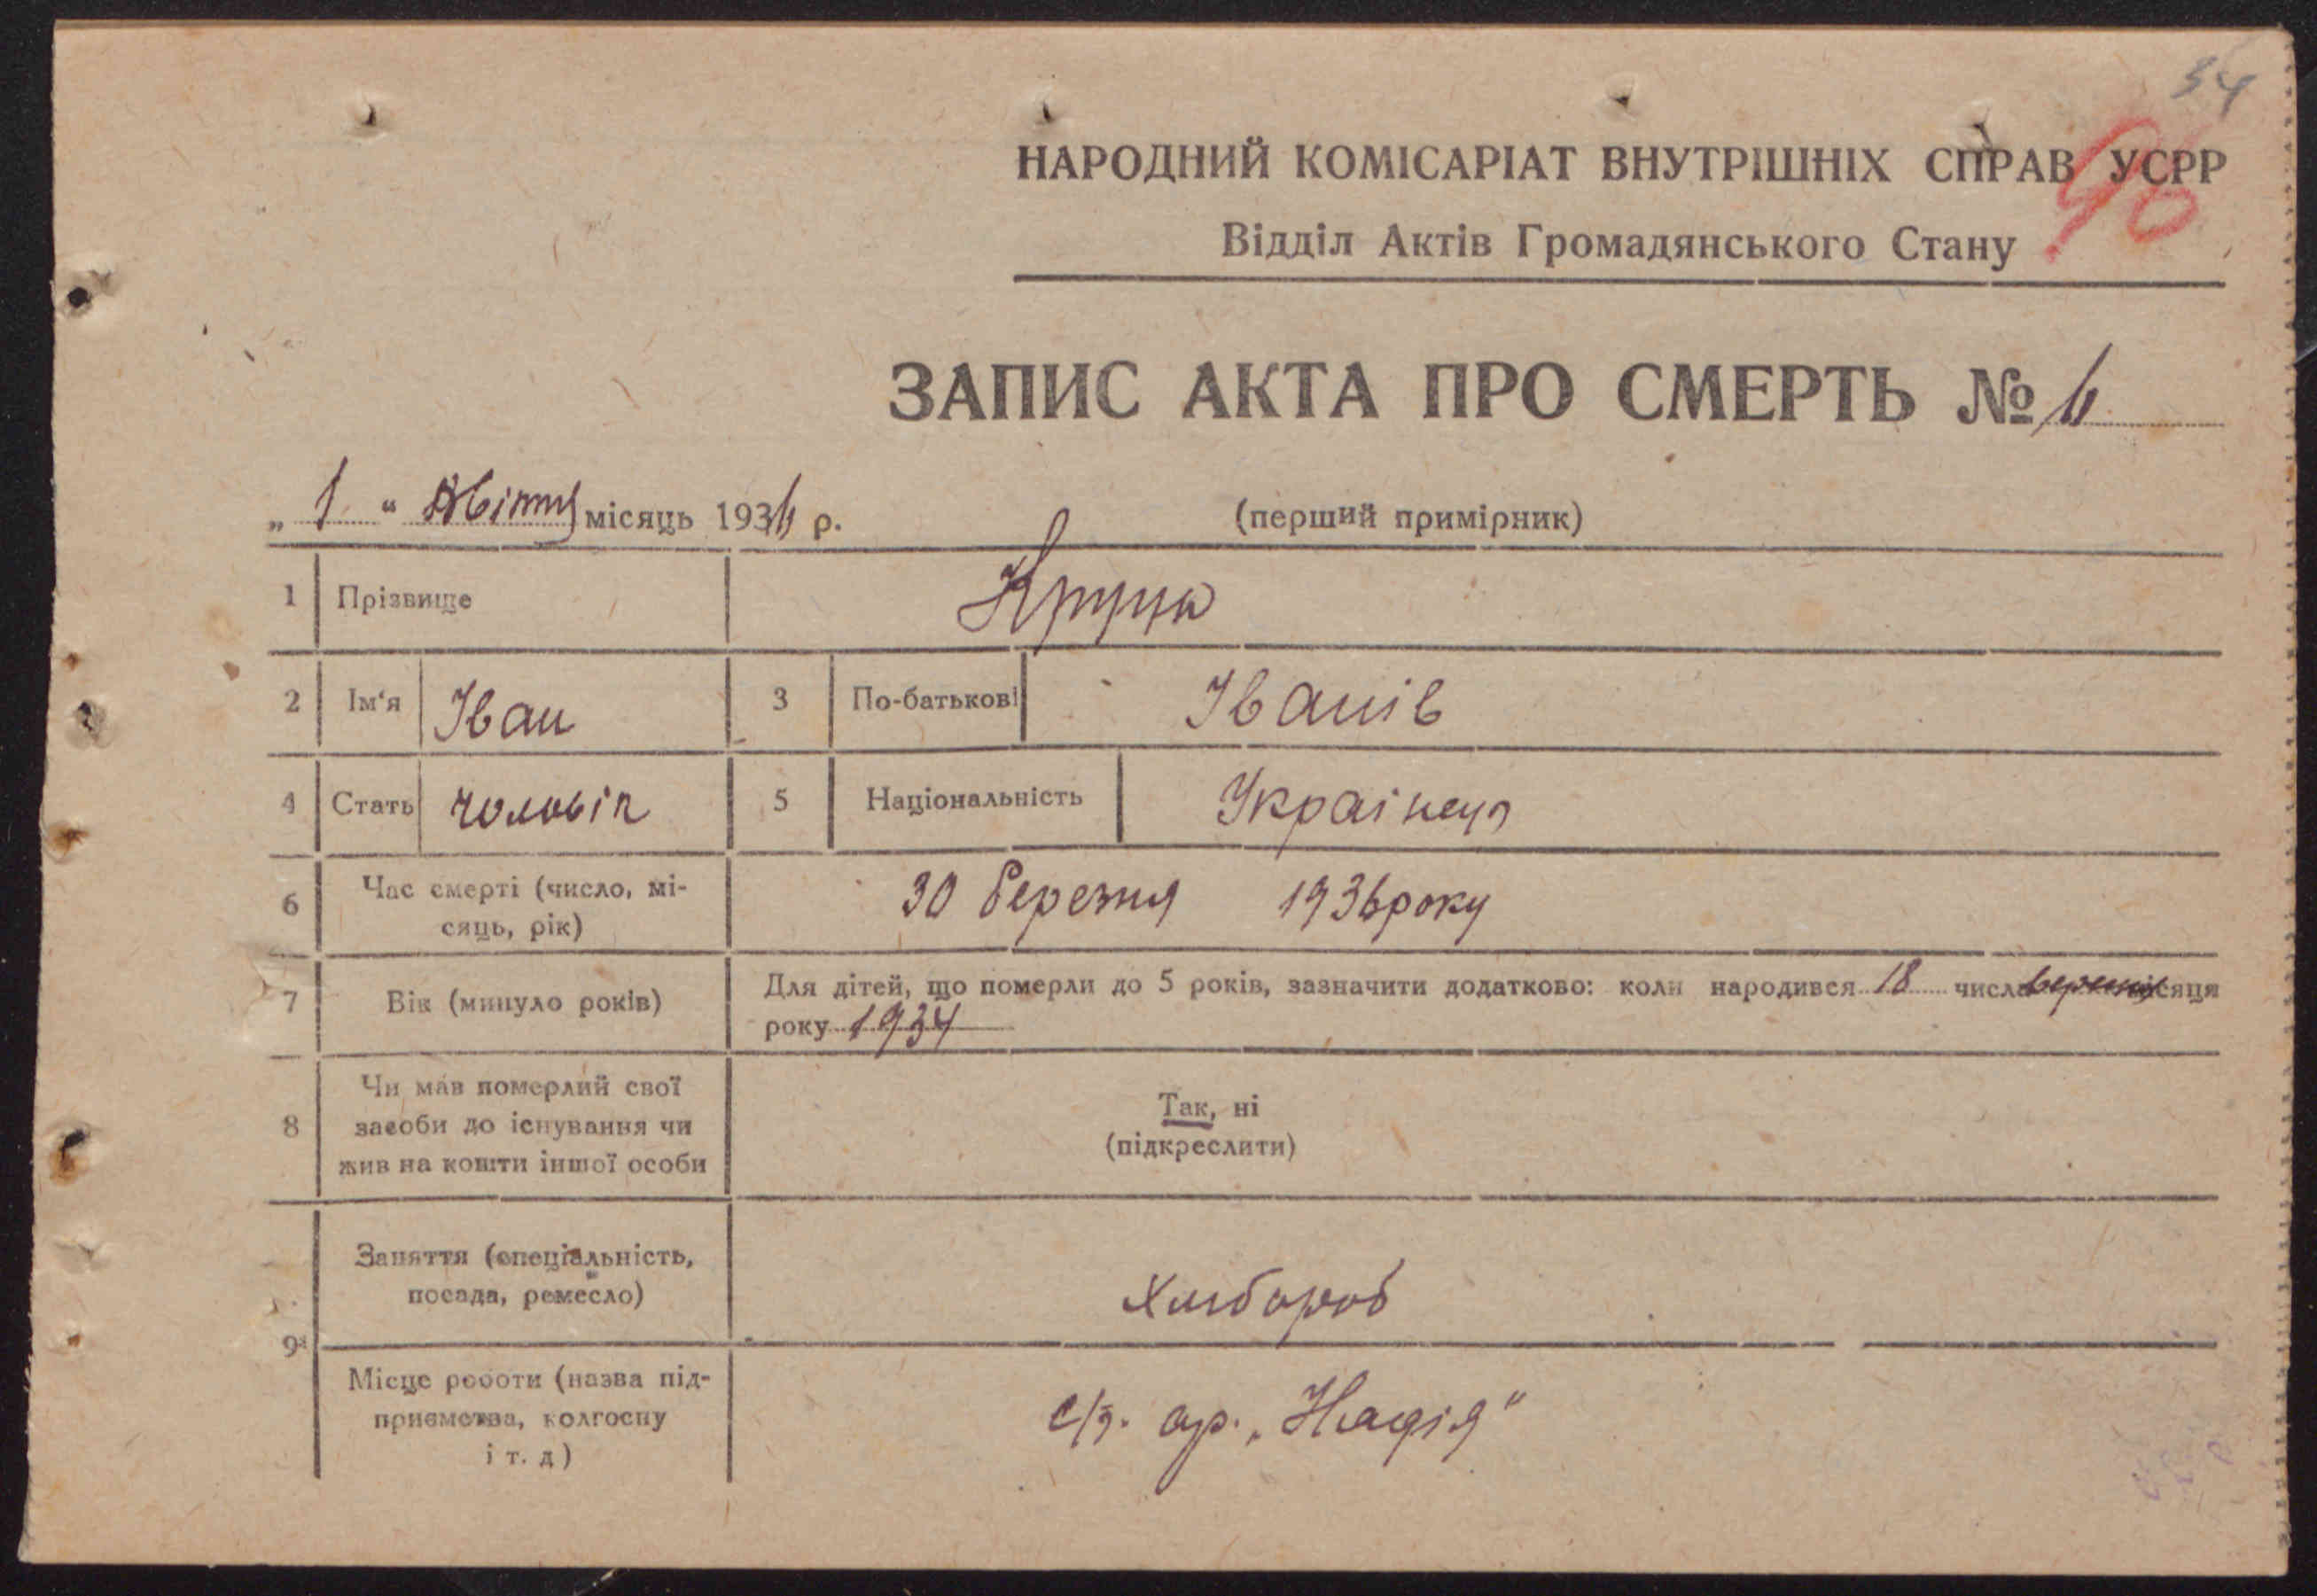 34
96
НАРОДНИЙ КОМІСАРІАТ ВНУТРІШНІХ СПРАВ УСРР
Відділ Актів Громадянського Стану
ЗАПИС АКТА ПРО СМЕРТЬ № 6
„ 1 “ Квітня місяць 1936 р. (перший примірник)
1 Прізвище
2 Ім‘я Іван 3 По-батькові Іванів
4 Стать чоловік 5 Національність Українец
6 Час смерті (число, мі-
сяць, рік) 30 березня 1936 року
7 Вік (минуло років) Для дітей, що померли до 5 років, зазначити додатково: коли народився 18 числа місяця
року 1934
8 Чи мав померлий свої
засоби до існування чи
жив на кошти іншої особи
Так, ні
(підкреслити)
9 Заняття (спеціальність,
посада, ремесло) Хлібороб
Місце роботи (назва під-
приємства, колгоспу
і т. д) с/г. ар. „Надія“